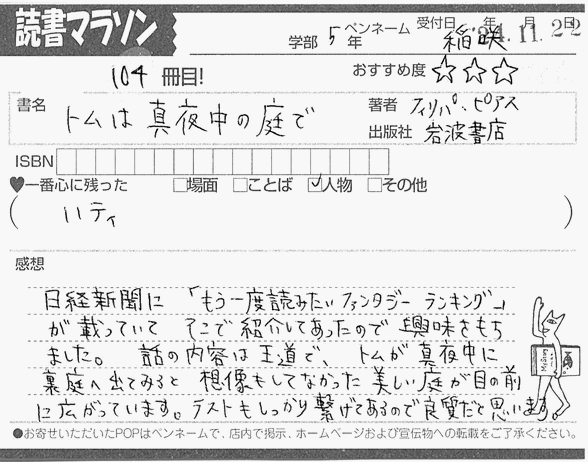 読書マラソン
学部 5年 ペンネーム 稲咲 受付日 '24.11.22 年 月 日
104 冊目! おすすめ度 ☆☆☆
書名 トムは真夜中の庭で
著者 フィリパ、ピアス
出版社 岩波書店
ISBN
♥一番心に残った □場面 □ことば ☑人物 □その他
( ハティ )
感想
日経新聞に 「もう一度読みたい ファンタジー ランキング」
が載っていて そこで紹介してあったので 興味をもち
ました。 話の内容は王道で、トムが真夜中に
裏庭へ出てみると 想像もしてなかった 美しい庭が目の前
に広がっています。ラストもしっかり繋げてあるので良質だと思います
●お寄せいただいたPOPはペンネームで、店内で掲示、ホームページおよび宣伝物への転載をご了承ください。